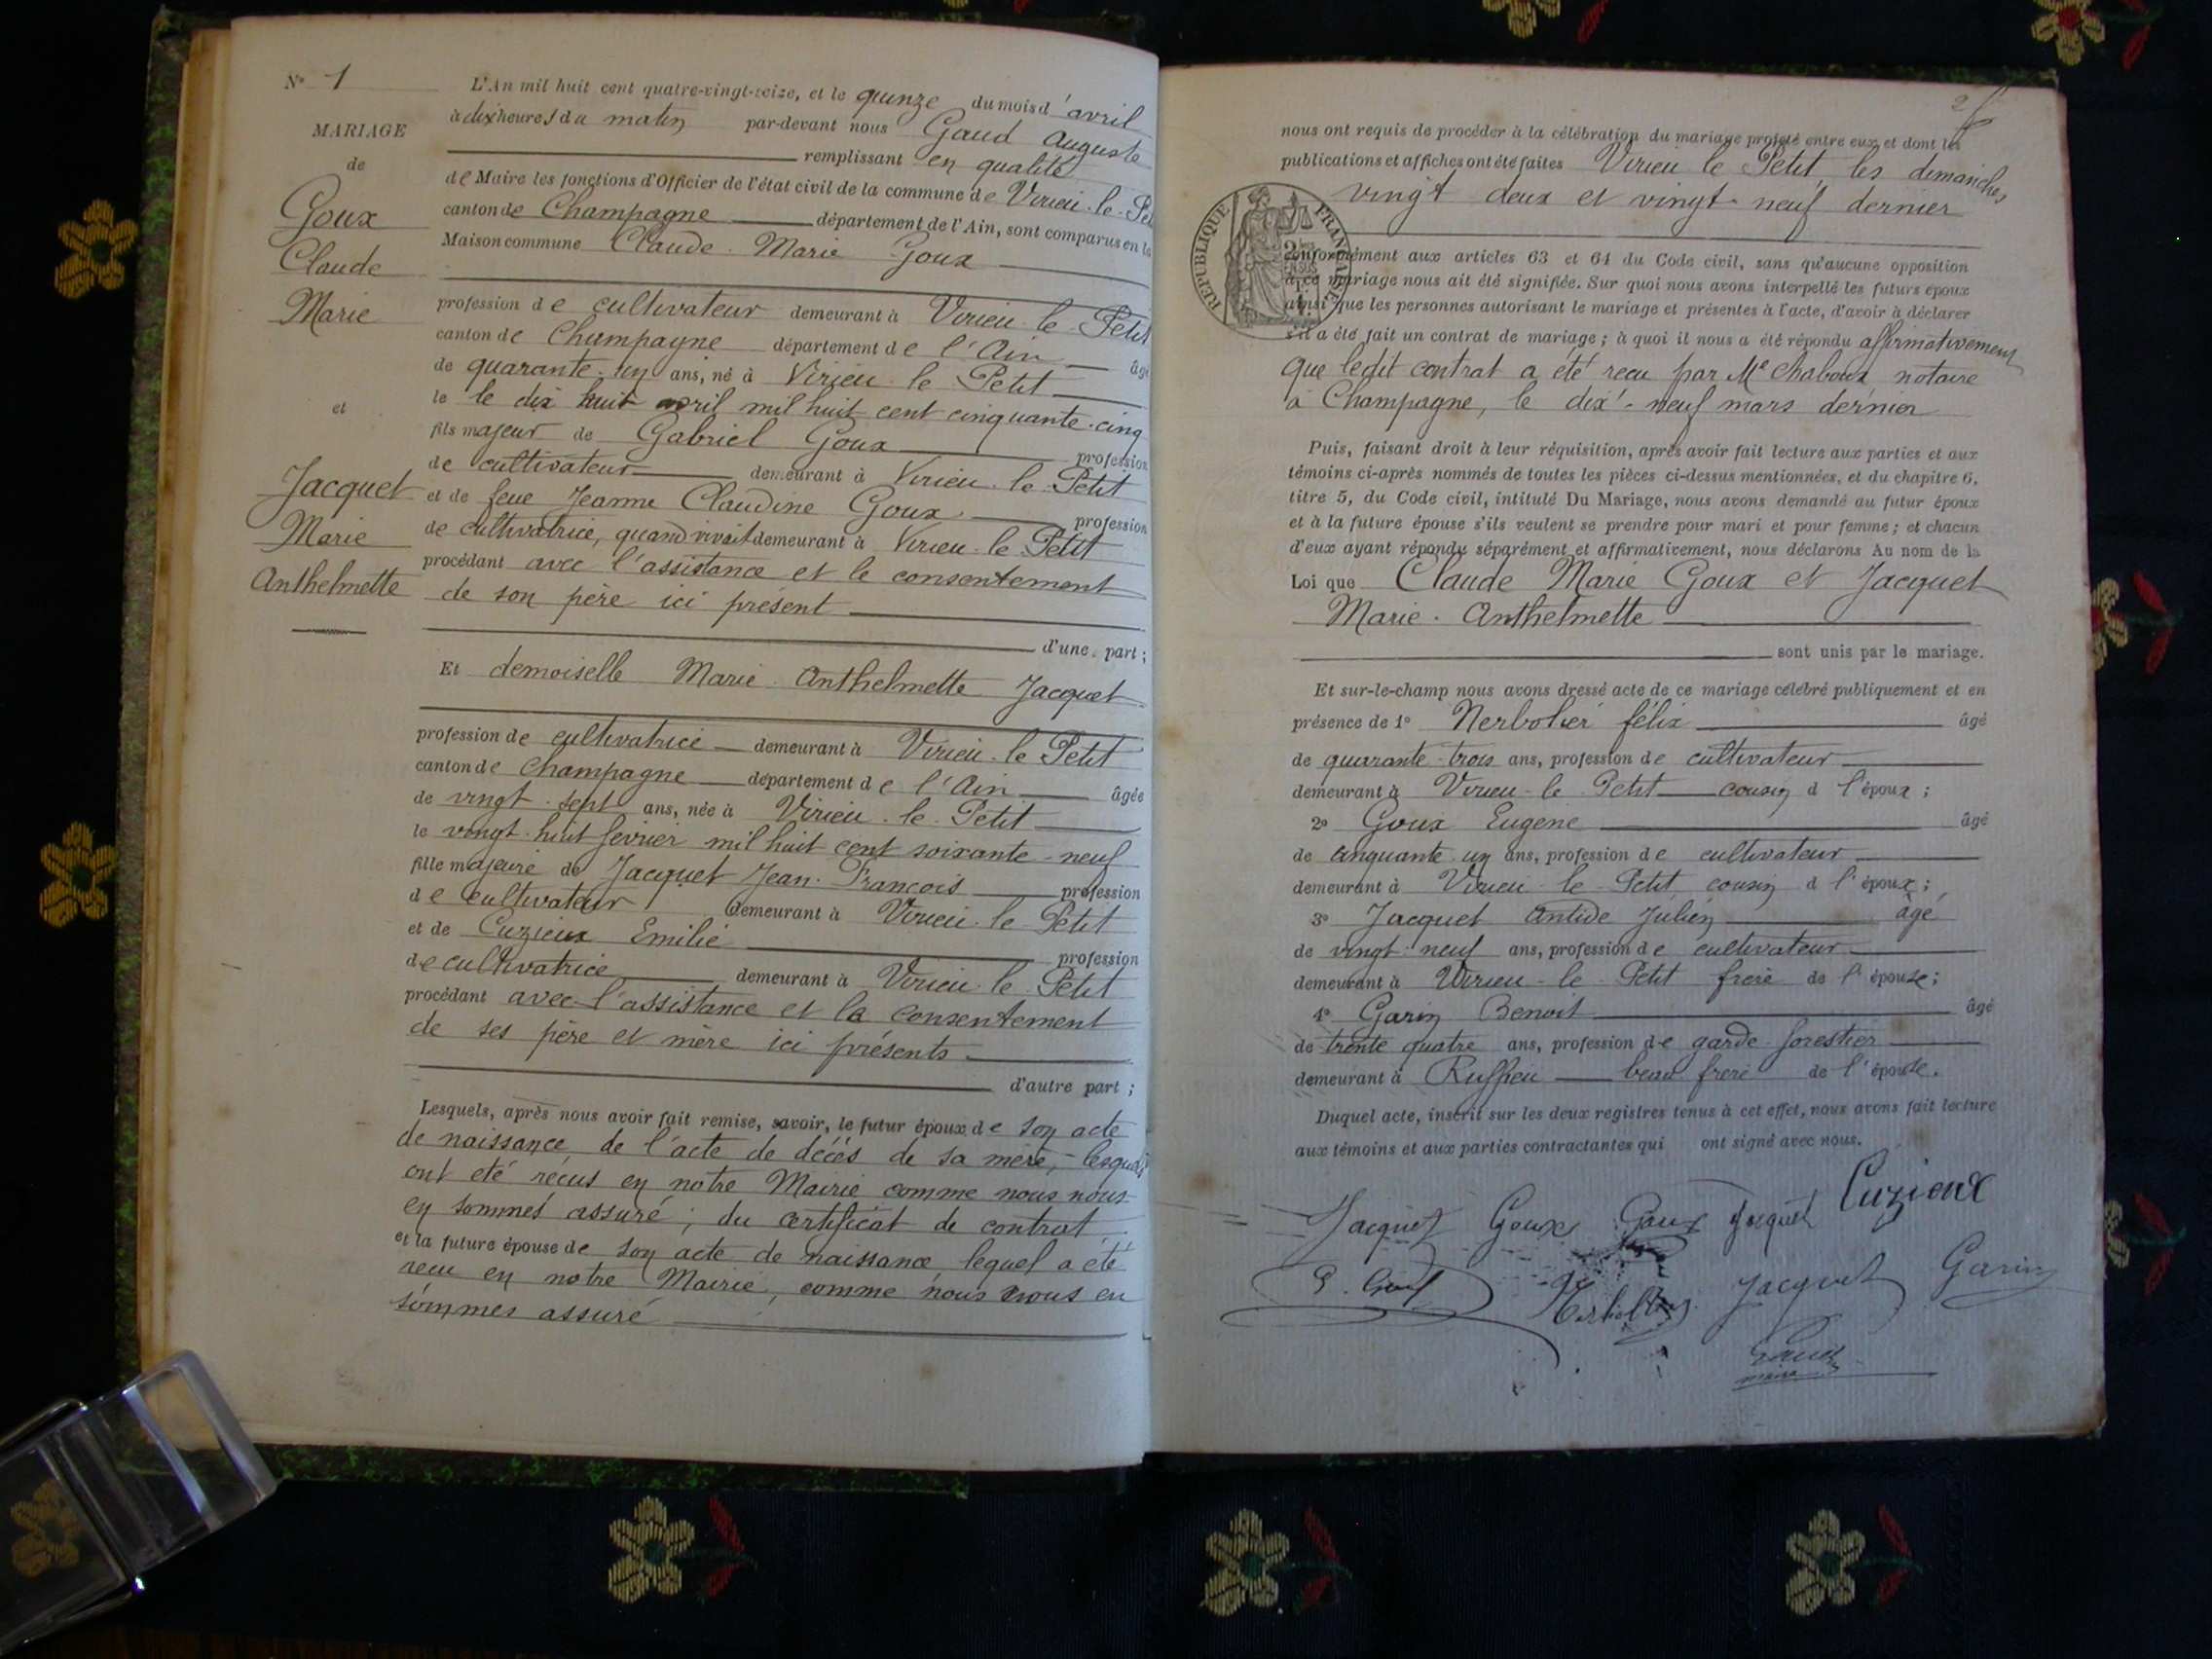 N° 1
MARIAGE
de
Goux
Claude
Marie
et
Jacquet
Marie
Anthelmette
L'An mil huit cent quatre-vingt-seize, et le quinze du mois d'avril
à dix heures du matin par-devant nous Gaud Auguste
remplissant en qualité
de Maire les fonctions d'Officier de l'état civil de la commune de Virieu-le-Pet
canton de Champagne département de l'Ain, sont comparus en la
Maison commune Claude-Marie Goux
profession de cultivateur demeurant à Virieu-le-Petit
canton de Champagne département de l'Ain âgé
de quarante-un ans, né à Virieu-le-Petit
le le dix huit avril mil huit cent cinquante-cinq
fils majeur de Gabriel Goux profession
de cultivateur demeurant à Virieu-le-Petit
et de feue Jeanne Claudine Goux profession
de cultivatrice, quand vivait demeurant à Virieu-le-Petit
procédant avec l'assistance et le consentement
de son père ici présent
d'une part;
Et demoiselle Marie Anthelmette Jacquet
profession de cultivatrice demeurant à Virieu-le-Petit
canton de Champagne département de l'Ain âgée
de vingt-sept ans, née à Virieu-le-Petit
le vingt-huit fevrier mil huit cent soixante-neuf
fille majeure de Jacquet Jean-François profession
de cultivateur demeurant à Virieu-le-Petit
et de Cuzieux Emilie profession
de cultivatrice demeurant à Virieu-le-Petit
procédant avec l'assistance et le consentement
de ses père et mère ici présents
d'autre part;
Lesquels, après nous avoir fait remise, savoir, le futur époux de son acte
de naissance, de l'acte de décès de sa mère, lesquels
ont été reçus en notre Mairie comme nous nous
en sommes assuré; du certificat de contrat
et la future épouse de son acte de naissance lequel a été
reçu en notre Mairie, comme nous nous en
sommes assuré
2
nous ont requis de procéder à la célébration du mariage projeté entre eux et dont les
publications et affiches ont été faites Virieu le Petit les dimanches
vingt deux et vingt-neuf dernier
RÉPUBLIQUE FRANÇAISE
Conformément aux articles 63 et 64 du Code civil, sans qu'aucune opposition
à ce mariage nous ait été signifiée. Sur quoi nous avons interpellé les futurs époux
ainsi que les personnes autorisant le mariage et présentes à l'acte, d'avoir à déclarer
s'il a été fait un contrat de mariage; à quoi il nous a été répondu affirmativement
que ledit contrat a été reçu par Me Chaboux notaire
à Champagne, le dix-neuf mars dernier
Puis, faisant droit à leur réquisition, après avoir fait lecture aux parties et aux
témoins ci-après nommés de toutes les pièces ci-dessus mentionnées, et du chapitre 6,
titre 5, du Code civil, intitulé Du Mariage, nous avons demandé au futur époux
et à la future épouse s'ils veulent se prendre pour mari et pour femme; et chacun
d'eux ayant répondu séparément et affirmativement, nous déclarons Au nom de la
Loi que Claude Marie Goux et Jacquet
Marie-Anthelmette
sont unis par le mariage.
Et sur-le-champ nous avons dressé acte de ce mariage célébré publiquement et en
présence de 1° Nerbolier félix âgé
de quarante-trois ans, profession de cultivateur
demeurant à Virieu-le-Petit cousin d l'époux;
2° Goux Eugene âgé
de cinquante-un ans, profession de cultivateur
demeurant à Virieu-le-Petit cousin d l'époux;
3° Jacquet Antide Julien âgé
de vingt-neuf ans, profession de cultivateur
demeurant à Virieu-le-Petit frere de l'épouse;
4° Garin Benoit âgé
de trente quatre ans, profession de garde-forestier
demeurant à Ruffieu beau-frere de l'épouse.
Duquel acte, inscrit sur les deux registres tenus à cet effet, nous avons fait lecture
aux témoins et aux parties contractantes qui ont signé avec nous.
Jacquet Goux Goux Jacquet Cuzieux
Jacquet Garin
Gaud
maire